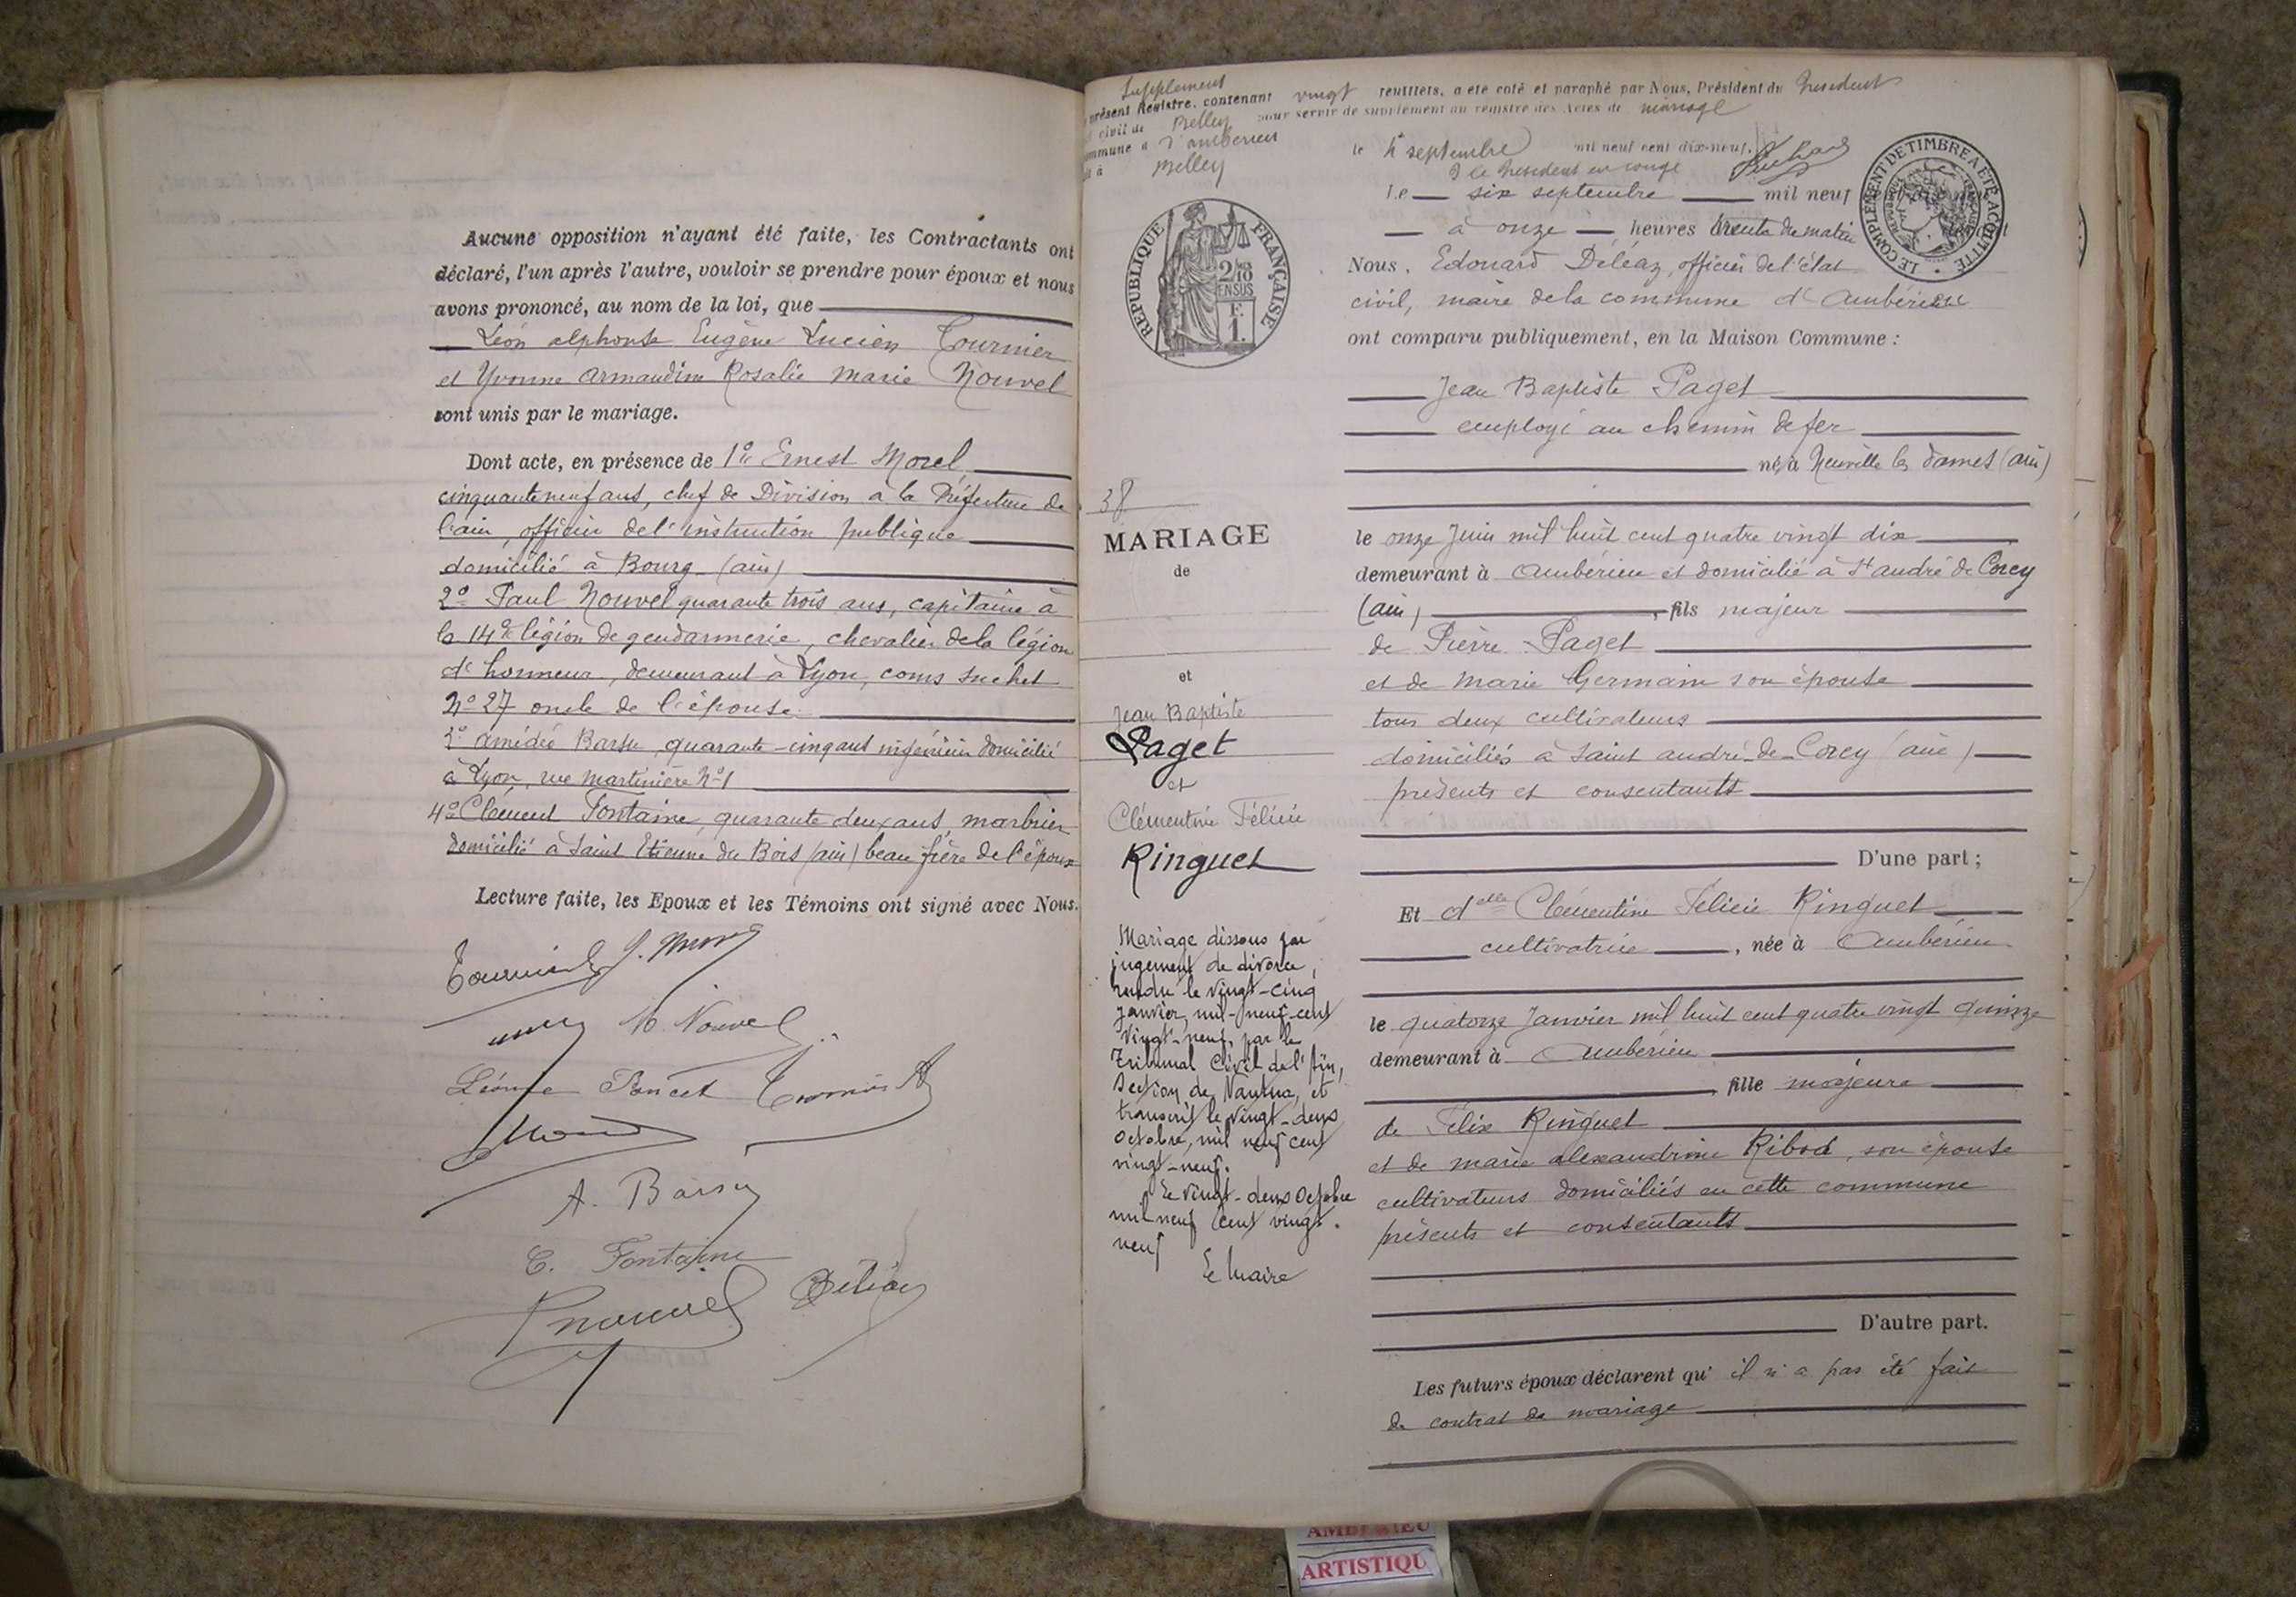 Aucune opposition n'ayant été faite, les Contractants ont
déclaré, l'un après l'autre, vouloir se prendre pour époux et nous
avons prononcé, au nom de la loi, que
Léon alphonse Eugène Lucien Tournier
et Yvonne Armandine Rosalie Marie Nouvel
sont unis par le mariage.
Dont acte, en présence de 1° Ernest Morel
cinquante neuf ans, chef de Division à la Préfecture de
l'ain, officier de l'instruction publique
domicilié à Bourg (ain)
2° Paul Nouvel quarante trois ans, capitaine à
la 14e légion de gendarmerie, chevalier de la légion
d'honneur, demeurant à Lyon, cours Suchet
N° 27 oncle de l'épouse
3° Amédée quarante-cinq ans ingénieur domicilié
à Lyon, rue Martinière N° 1
4° Clément Fontaine, quarante deux ans, marbrier
domicilié à Saint Etienne du Bois (ain) beau frère de l'époux
Lecture faite, les Epoux et les Témoins ont signé avec Nous.
Nouvel
Poncet
A.
C. Fontaine
Déléaz
Supplément
présent Registre, contenant vingt feuillets, a été coté et paraphé par Nous, Président du
civil de Belley pour servir de supplément au registre des Actes de mariage
commune d'ambérieu
à Belley le 4 septembre mil neuf cent dix-neuf.
Le Président
LE COMPLEMENT DE TIMBRE A ETE ACQUITTE
REPUBLIQUE FRANÇAISE
F. 1.
Le six septembre mil neuf
à onze heures trente du matin
Nous, Edouard Déléaz, officier de l'état
civil, maire de la commune d'Ambérieu
ont comparu publiquement, en la Maison Commune :
Jean Baptiste Paget
employé au chemin de fer
né à Neuville les Dames (ain)
le onze Juin mil huit cent quatre vingt dix
demeurant à Ambérieu et domicilié à St andré de Corcy
(ain), fils majeur
de Pierre Paget
et de Marie Germain son épouse
tous deux cultivateurs
domiciliés à Saint andré-de-Corcy (ain)
présents et consentants
D'une part ;
Et delle Clémentine Félicie Ringuet
cultivatrice, née à Ambérieu
le quatorze Janvier mil huit cent quatre vingt quinze
demeurant à Ambérieu
fille majeure
de Félix Ringuet
et de marie alexandrine Ribod, son épouse
cultivateurs domiciliés en cette commune
présents et consentants
D'autre part.
Les futurs époux déclarent qu'il n'a pas été fait
de contrat de mariage
38
MARIAGE
de
et
Jean Baptiste
Paget
et
Clémentine Félicie
Ringuet
Mariage dissous par
jugement de divorce,
rendu le vingt-cinq
Janvier, mil-neuf-cent
vingt-neuf, par le
Tribunal Civil de l'Ain,
Section de Nantua, et
transcrit le vingt-deux
Octobre, mil neuf cent
vingt-neuf.
Le vingt-deux Octobre
mil neuf cent vingt-
neuf
Le Maire
AMBERIEU
ARTISTIQU